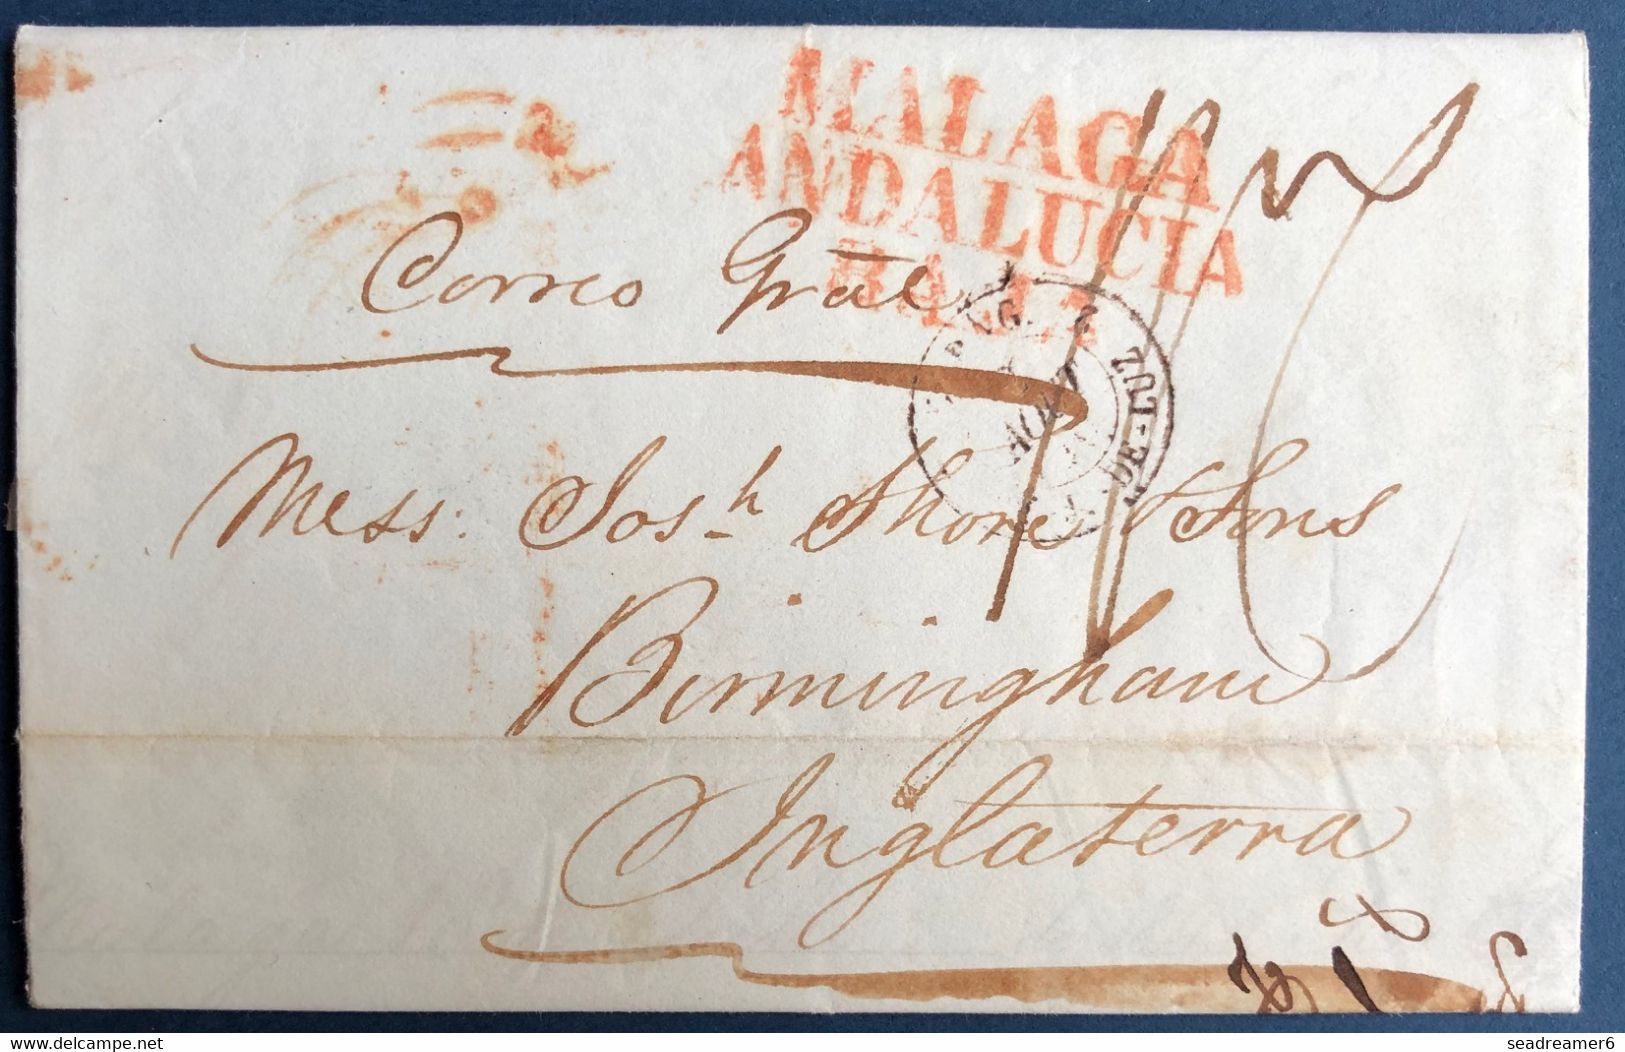 MALAGA
ANDALUCIA
BAJA
Correo Gràl
AOUT
DE-LUZ
Mess: Josh Shore & Sons
Birmingham
Inglaterra
delcampe.net
seadreamer6